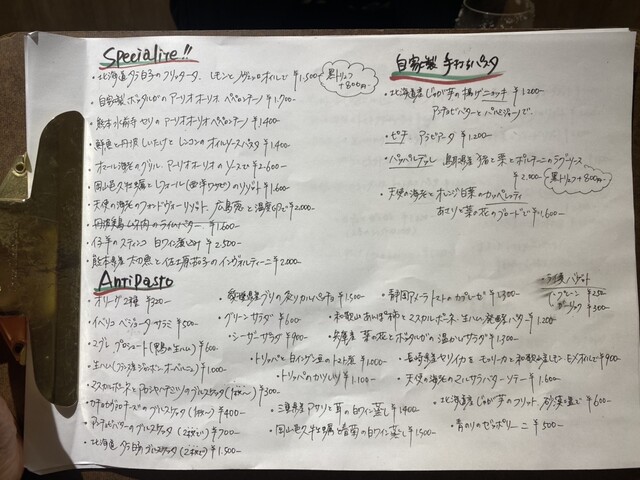 Specialite!!
・北海道タラ白子のフリッタータ レモンと オイルで ¥1,500-
黒トリュフ
+800円
・自家製 ボッタルガの アーリオ オーリオ ペペロンチーノ ¥1,700-
・熊本水前寺セリの アーリオオーリオ ペペロンチーノ ¥1,400-
・鮮魚と丹波しいたけと レンコンの オイルソースパスタ ¥1,400-
・オマール海老のグリル アーリオオーリオの ソースで ¥2,600-
・岡山邑久牡蠣と レフォール(西洋ワサビ)のリゾット ¥1,600-
・天使の海老の フォンドヴォーリゾット、広島 と 温度卵で ¥2,000-
¥1,600-
・仔羊の スティンコ 白ワイン煮込み ¥2,500-
・熊本県産 と佐土原茄子の インヴォルティーニ ¥2,000-
自家製 手打ちパスタ
・北海道産じゃが芋の揚げニョッキ ¥1,200-
アンチョビバターと で
・ピチ アラビアータ ¥1,200-
・パッパルデッレ 島根県産 猪と栗とポルチーニのラグソース
¥2,200-
黒トリュフ+800円
・天使の海老と オレンジ白菜の カッペレッティ
あさりと菜の花のブロードで ¥1,600-
Antipasto
・オリーブ2種 ¥300-
・イベリコ ベジョータサラミ ¥500-
・マグレ プロシュート(鴨の生ハム) ¥600-
・生ハム(フランス産 ) ¥1,000-
・マスカルポーネと のブルスケッタ (1枚〜) ¥300-
・ のブルスケッタ (1枚〜) ¥400-
・アンチョビバターのブルスケッタ (2枚で) ¥700-
・北海道 タラ白子のブルスケッタ (2枚で) ¥1,500-
・愛媛県産ブリの炙りカルパッチョ ¥1,500-
・グリーンサラダ ¥600-
・シーザーサラダ ¥900-
・トリッパと白インゲン豆のトマト煮 ¥1,000-
・トリッパのカツレツ ¥1,100-
・三重県産 アサリと茸の白ワイン蒸し ¥1,400-
・岡山邑久牡蠣と の白ワイン蒸し ¥1,500-
・静岡アメーラトマトのカプレーゼ ¥1,300-
・和歌山あんぽ柿とマスカルポーネ・生ハム、発酵バター ¥1,200-
・兵庫産 菜の花とボッタルガの温かいサラダ ¥1,300-
・長崎県産ヤリイカを と和歌山産レモン オイルで ¥900-
・天使の海老のマルサラバターソテー ¥1,600-
・北海道産じゃが芋のフリット、 で ¥600-
・青のりのゼッポリーニ ¥500-
・ バゲット
・プレーン ¥250
・ガーリック ¥300-